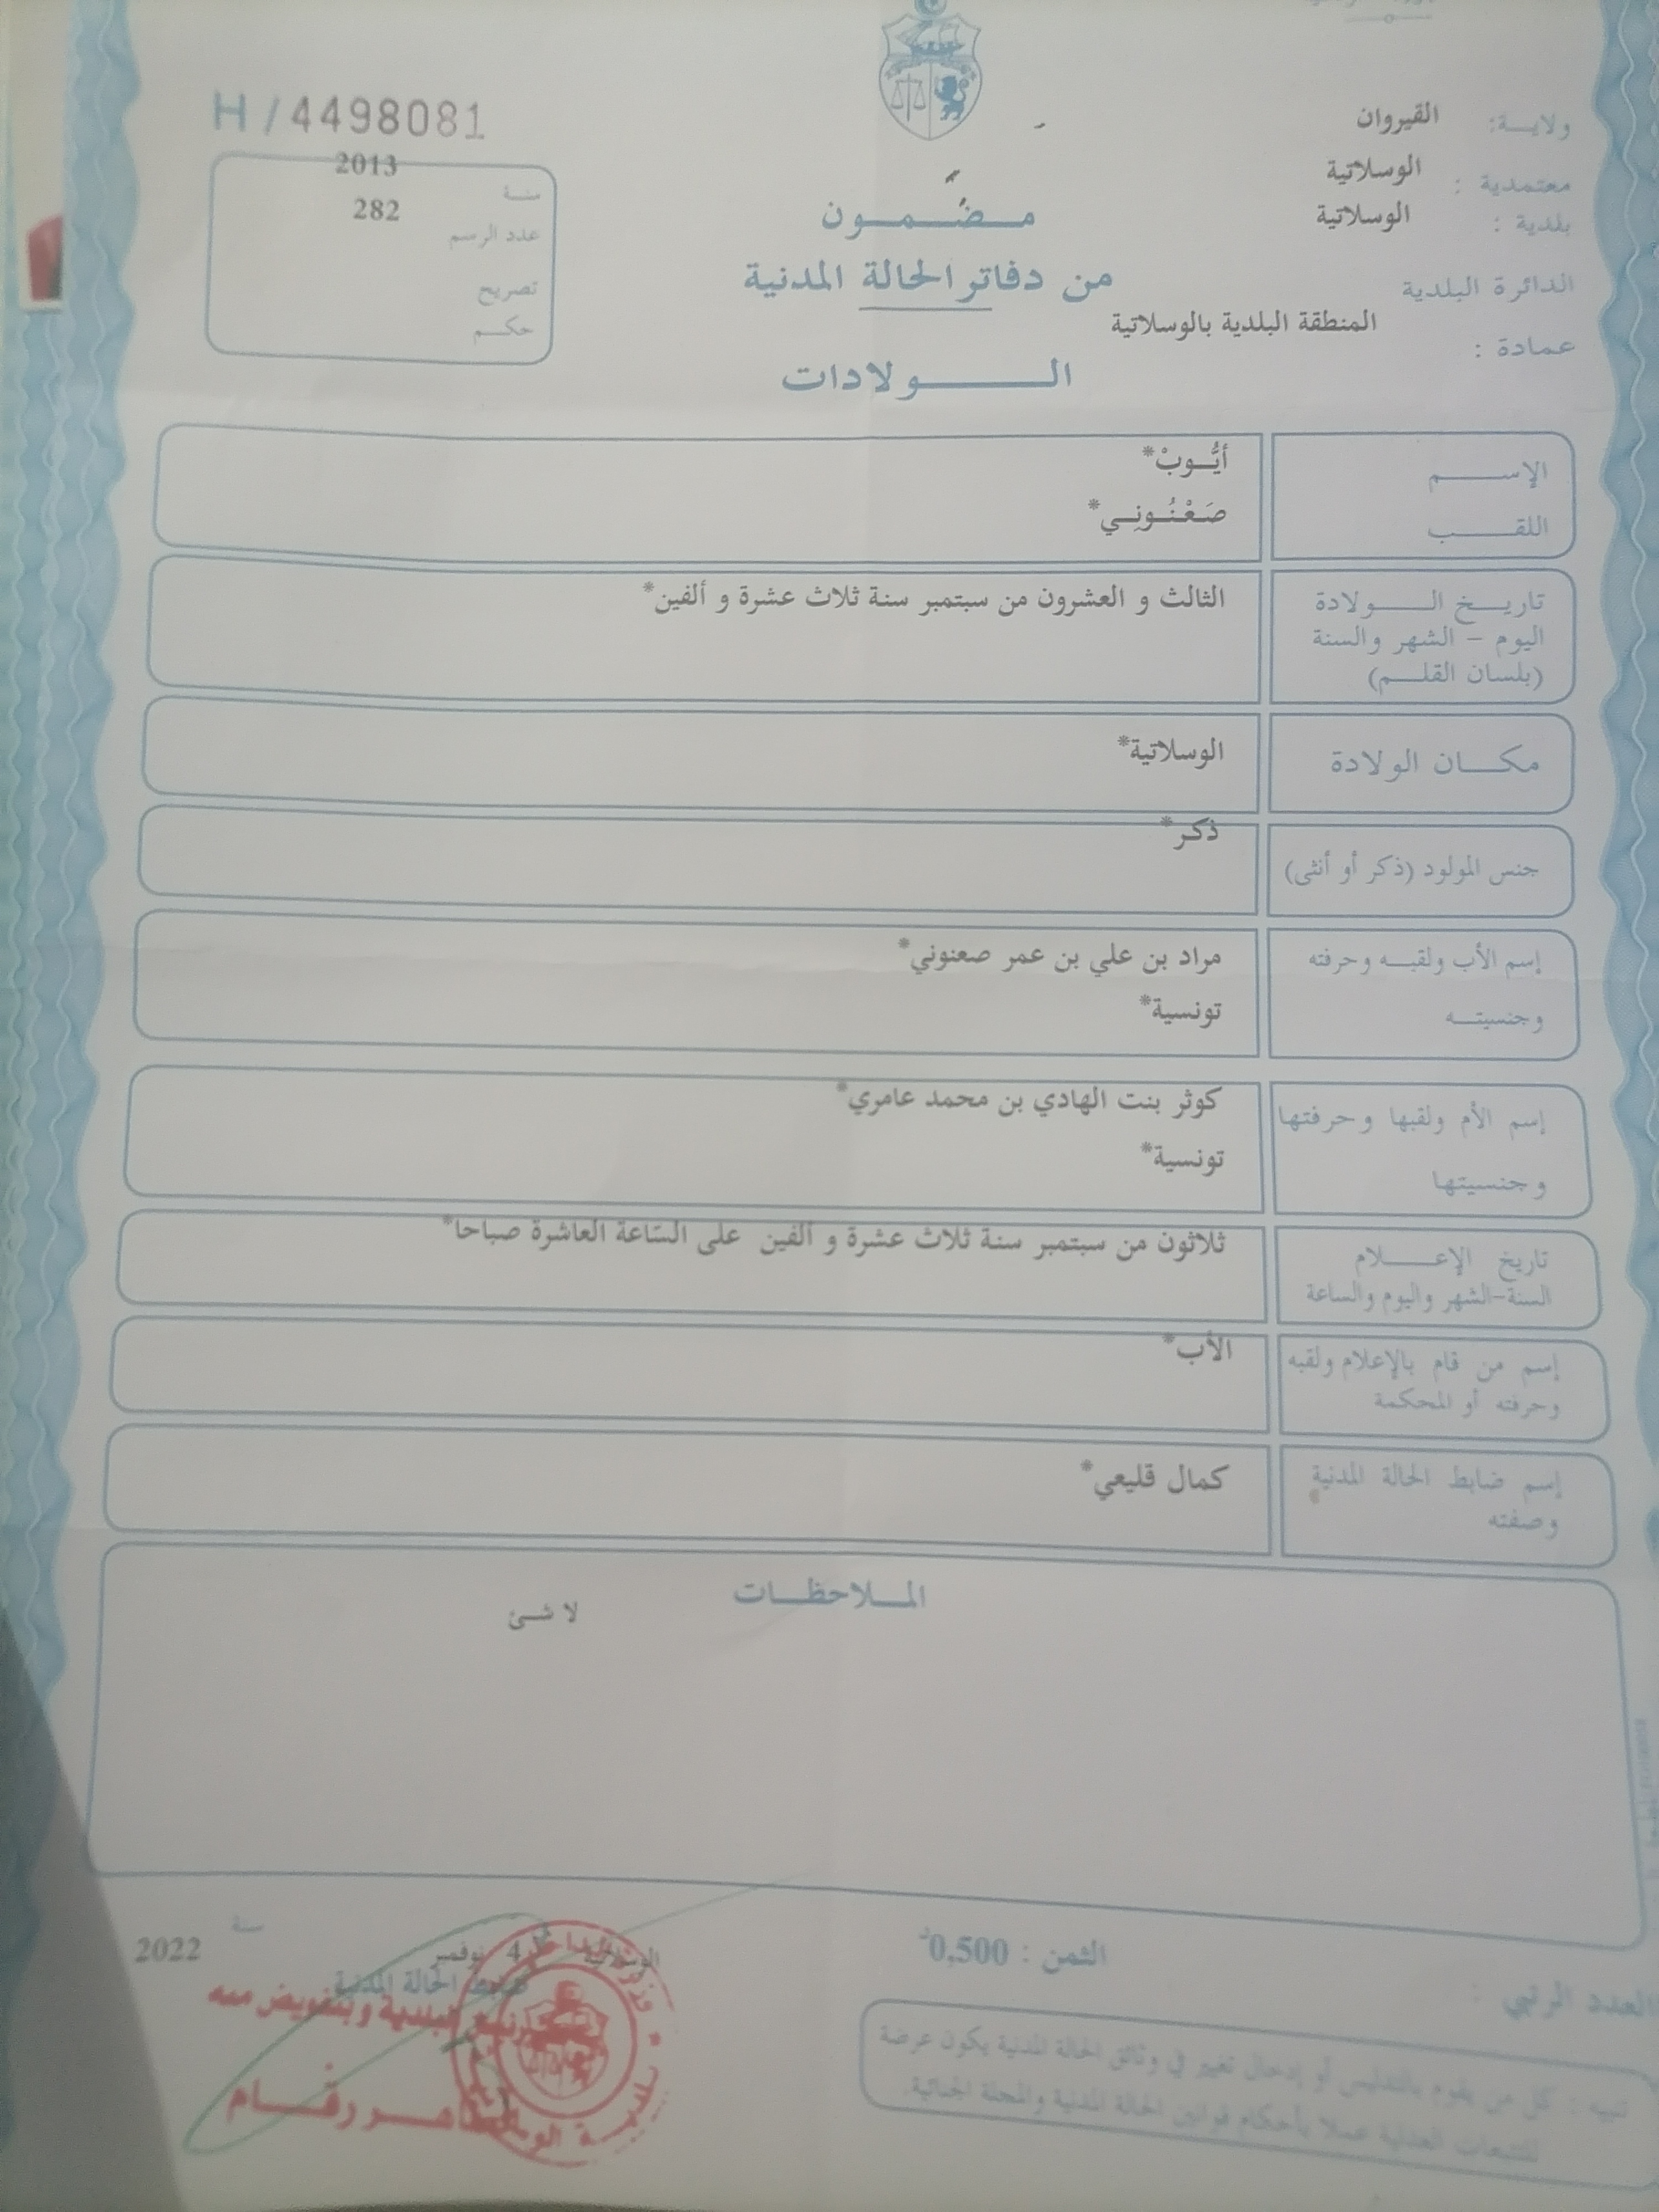 H / 4498081
ولايـــة: القيروان
معتمدية : الوسلاتية
بلدية : الوسلاتية
الدائرة البلدية
المنطقة البلدية بالوسلاتية
عمادة :
سنـة 2013
عدد الرسم 282
تصريح
حكـــم
مـــضـــمـــون
من دفاتر الحالة المدنية
الـــــــولادات
الإســـــــم أيُّـــوبْ*
اللقـــــب صَـعْـنُـونِـي*
تاريـــخ الـــــولادة الثالث و العشرون من سبتمبر سنة ثلاث عشرة و ألفين*
اليوم – الشهر والسنة
(بلسان القلـــم)
مكـــان الولادة الوسلاتية*
جنس المولود (ذكر أو أنثى) ذكر*
إسم الأب ولقبـــه وحرفته مراد بن علي بن عمر صعنوني*
وجنسيتـــه تونسية*
إسم الأم ولقبها وحرفتها كوثر بنت الهادي بن محمد عامري*
وجنسيتها تونسية*
تاريخ الإعـــــلام ثلاثون من سبتمبر سنة ثلاث عشرة و ألفين على السّاعة العاشرة صباحا*
السنة–الشهر واليوم والساعة
إسم من قام بالإعلام ولقبه الأب*
وحرفته أو المحكمة
إسم ضابط الحالة المدنية كمال قليعي*
وصفته
المـــلاحظـــات
لا شئ
الوسلاتية 4 نوفمبر سنة 2022
ضابط الحالة المدنية
البلدية وبتفويض منه
الثمن : 0,500د
العدد الرتبي :
تنبيه : كل من يقوم بالتدليس أو إدخال تغيير في وثائق الحالة المدنية يكون عرضة
للتتبعات العدلية عملا بأحكام قوانين الحالة المدنية والمجلة الجنائية.